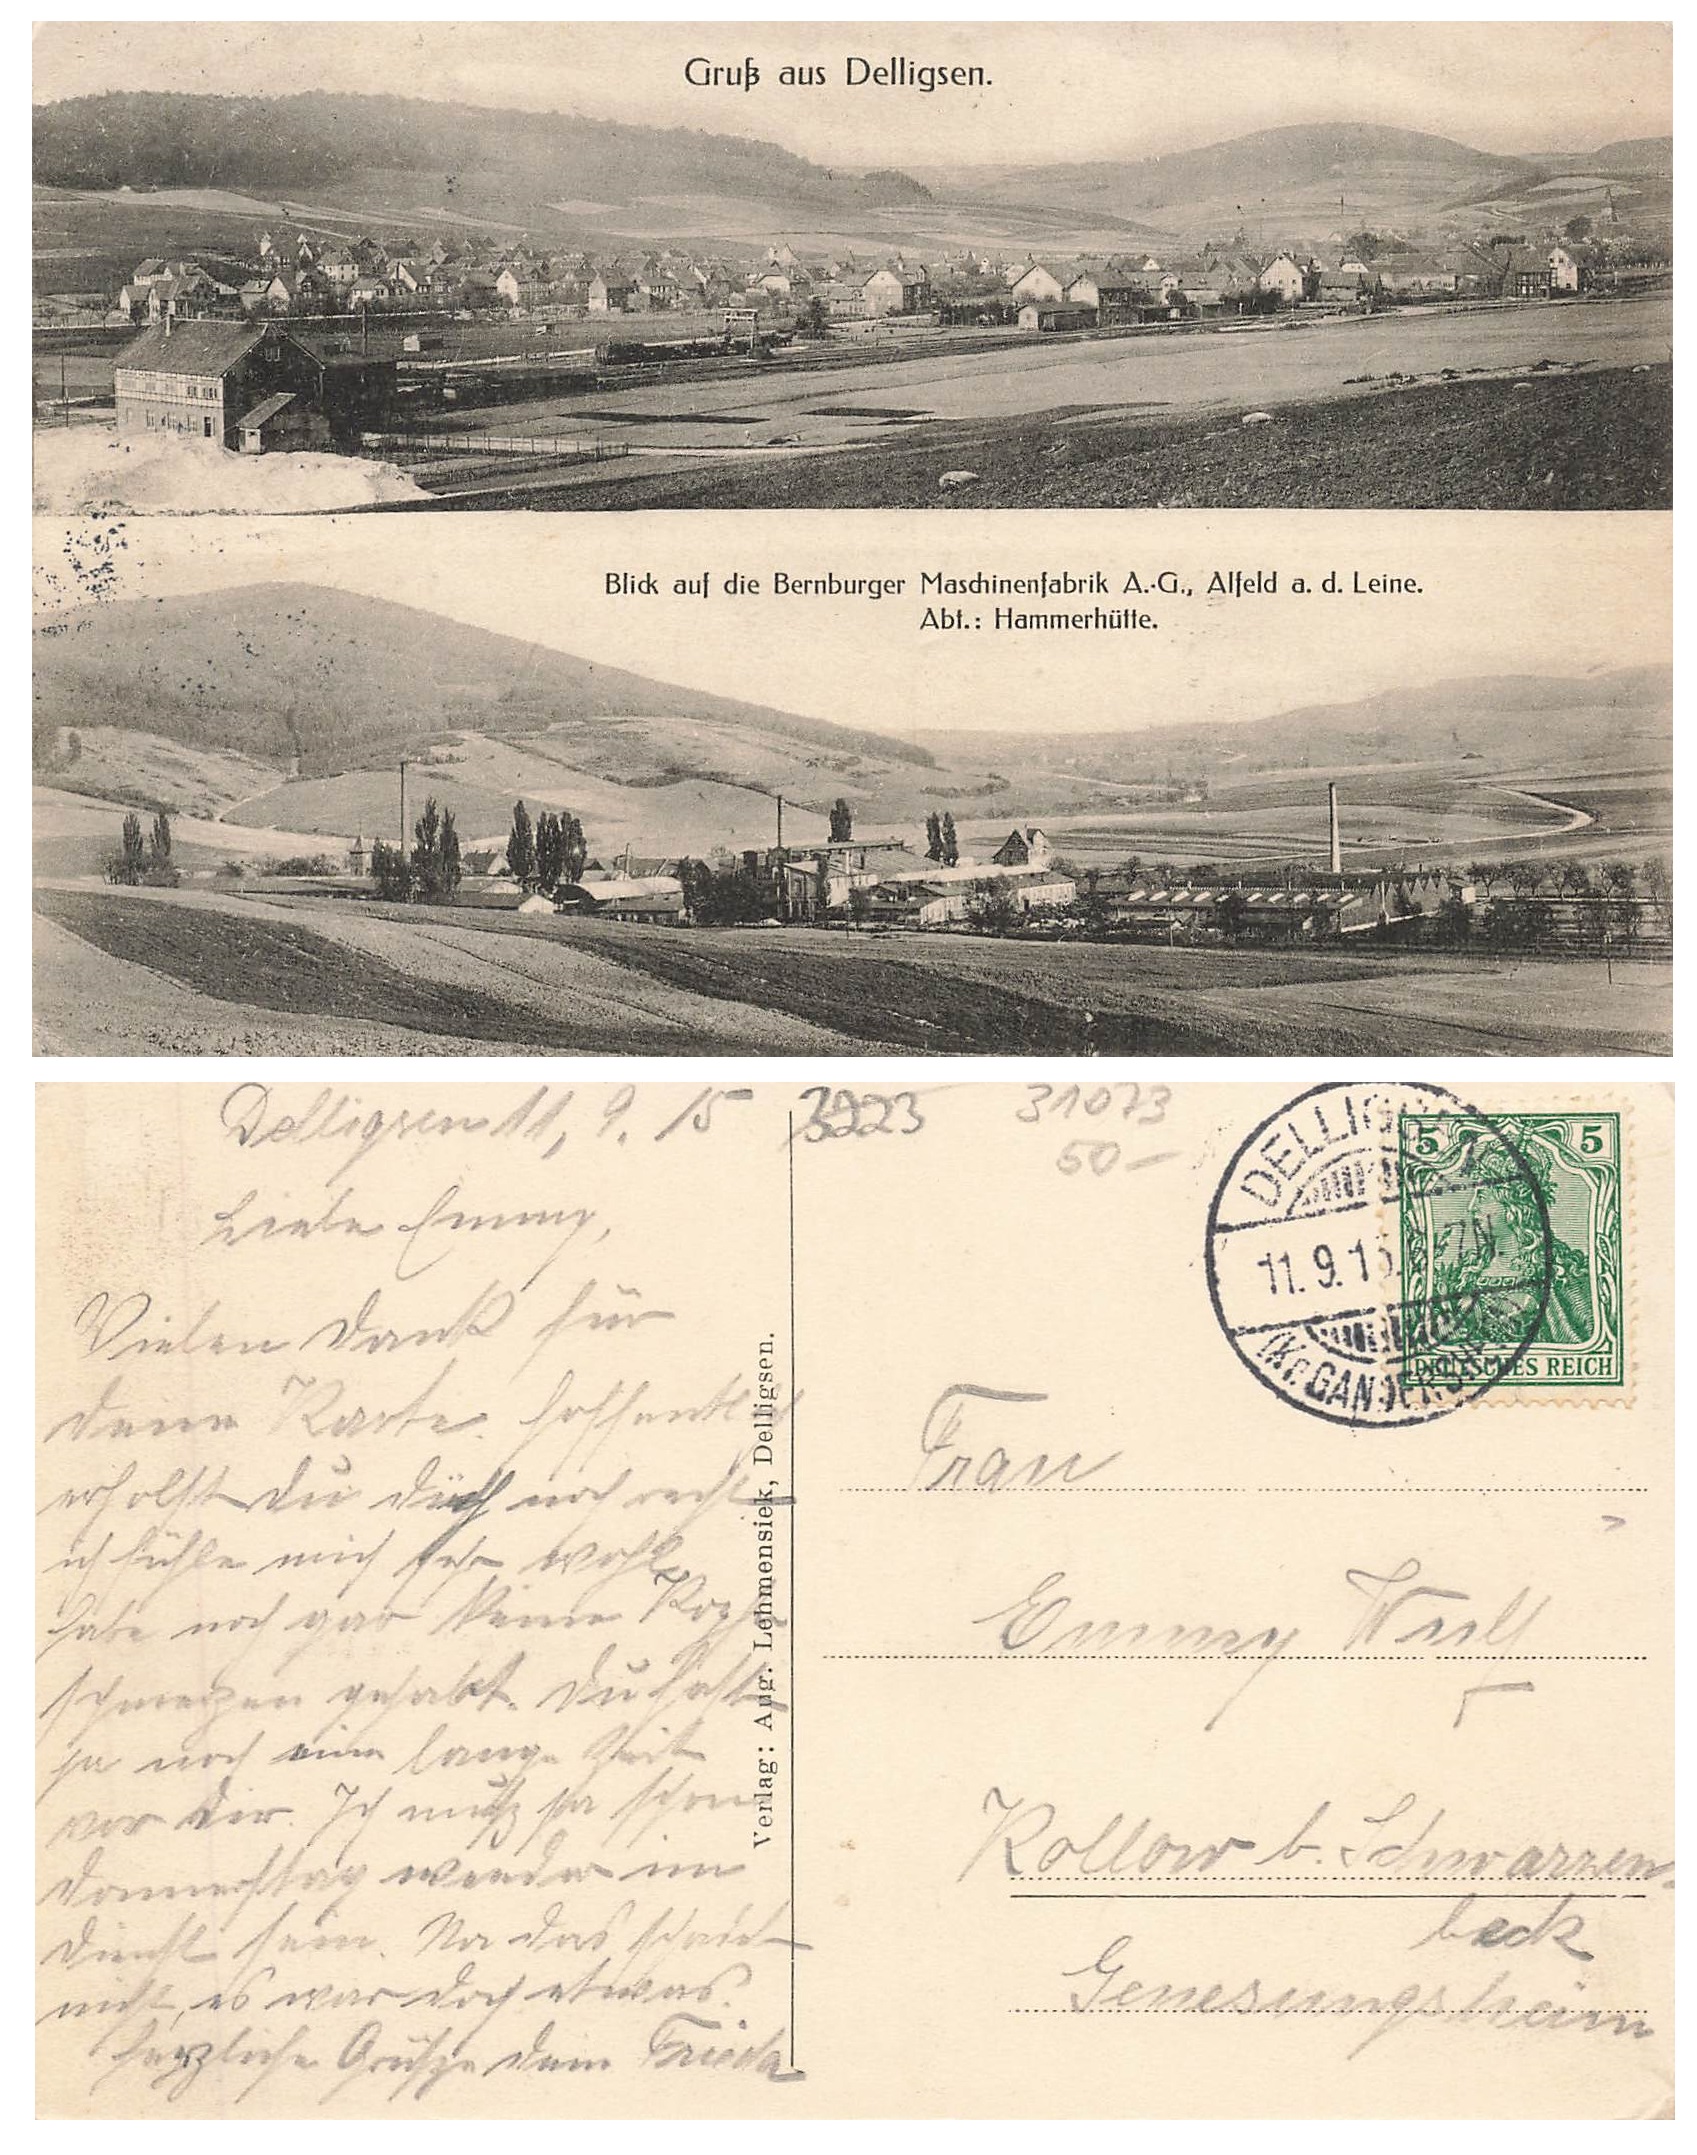 Gruß aus Delligsen.
Blick auf die Bernburger Maschinenfabrik A.-G., Alfeld a. d. Leine.
Abt.: Hammerhütte.
Delligsen 11, 9. 15
3223
31073
50—
Liebe Emmy,
Vielen Dank für
deine Karte. Hoffentlich
erholst du dich noch recht
ich fühle mich sehr wohl,
habe noch gar keine Kopf
schmerzen gehabt. Du hast
ja noch eine lange Zeit
vor dir. Ich muß ja schon
Donnerstag wieder im
Dienst sein. Na das schad
nicht, es war doch etwas.
Herzliche Grüße dein Frieda
Verlag: Aug. Lehmensiek, Delligsen.
DELLIGSEN
11.9.15. 7N.
(Kr. GANDERSHEIM)
5 5
DEUTSCHES REICH
Frau
Emmy Wulf
Kollow b. Schwarzen
beck
Genesungsheim